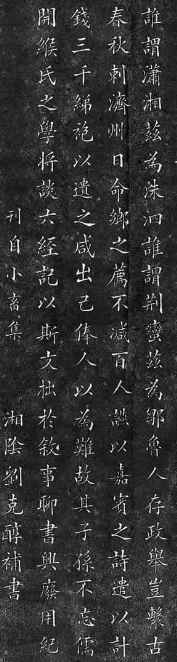 誰謂瀟湘茲為洙泗誰謂荆蠻茲為鄒魯人存政舉豈繫古
春秋刺濟州日命鄉之薦不減百人讌以嘉賓之詩遣以計
錢三千綈袍以遺之咸出己俸人以為難故其子孫不忘儒
開緱氏之學将談六經記以斯文拙於敘事聊書興廢用紀
刊自小畜集
湘陰劉克醇補書